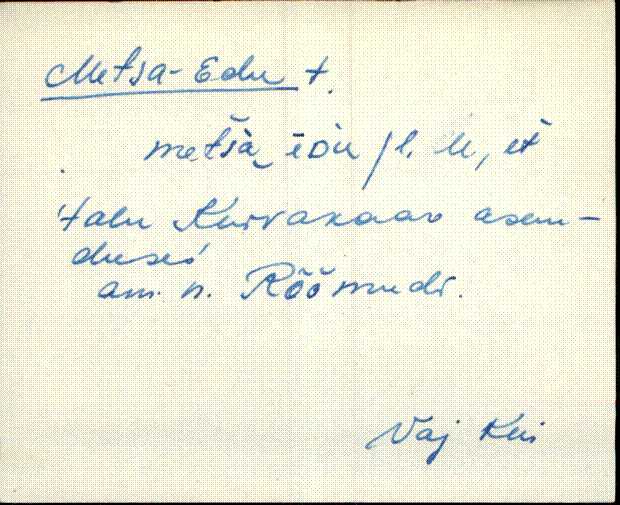 Metsa-Edu t.
metša edu / l. U, et
talu Kurvaxaav asen-
duses
am. n. Rõõmudi.
Vaj Kli